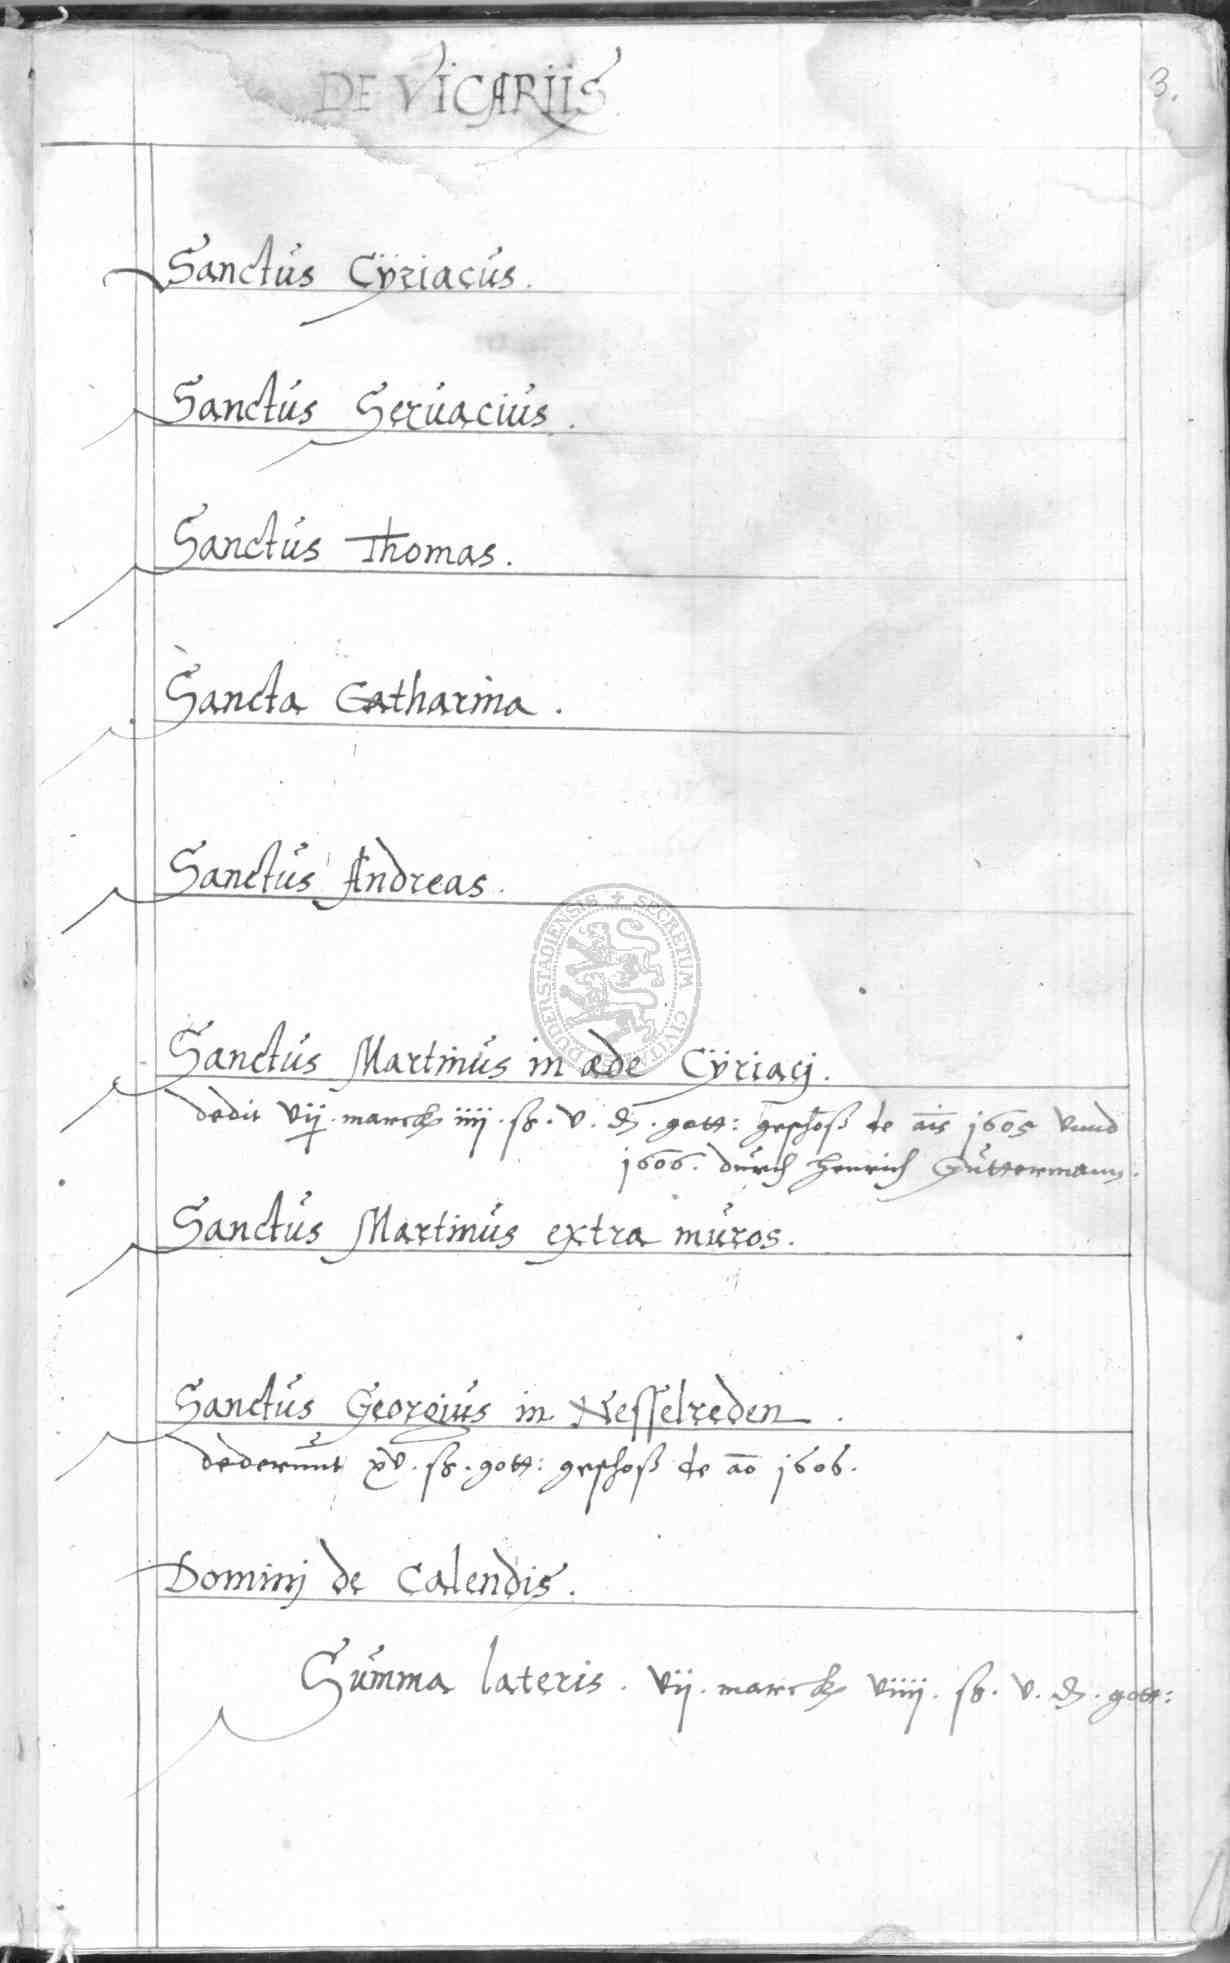 DE VICARIIS
3.
Sanctus Cÿriacus.
Sanctus Seruacius.
Sanctus Thomas.
Sancta Catharina.
Sanctus Andreas.
SECRETUM CIVITATIS DUDERSTADIENSIS
Sanctus Martinus in æde Cÿriacj.
dedit vij. marck iiij. ß. v. ₰. gott: geschoß de ais 1605 vnnd
1606. durch Henrich Güttermann.
Sanctus Martinus extra muros.
Sanctus Georgius in Nesselreden.
dederunt xv. ß. gott: geschoß de ao 1606.
Dominj de Calendis.
Summa lateris. vij. marck viiij. ß. v. ₰. gott: